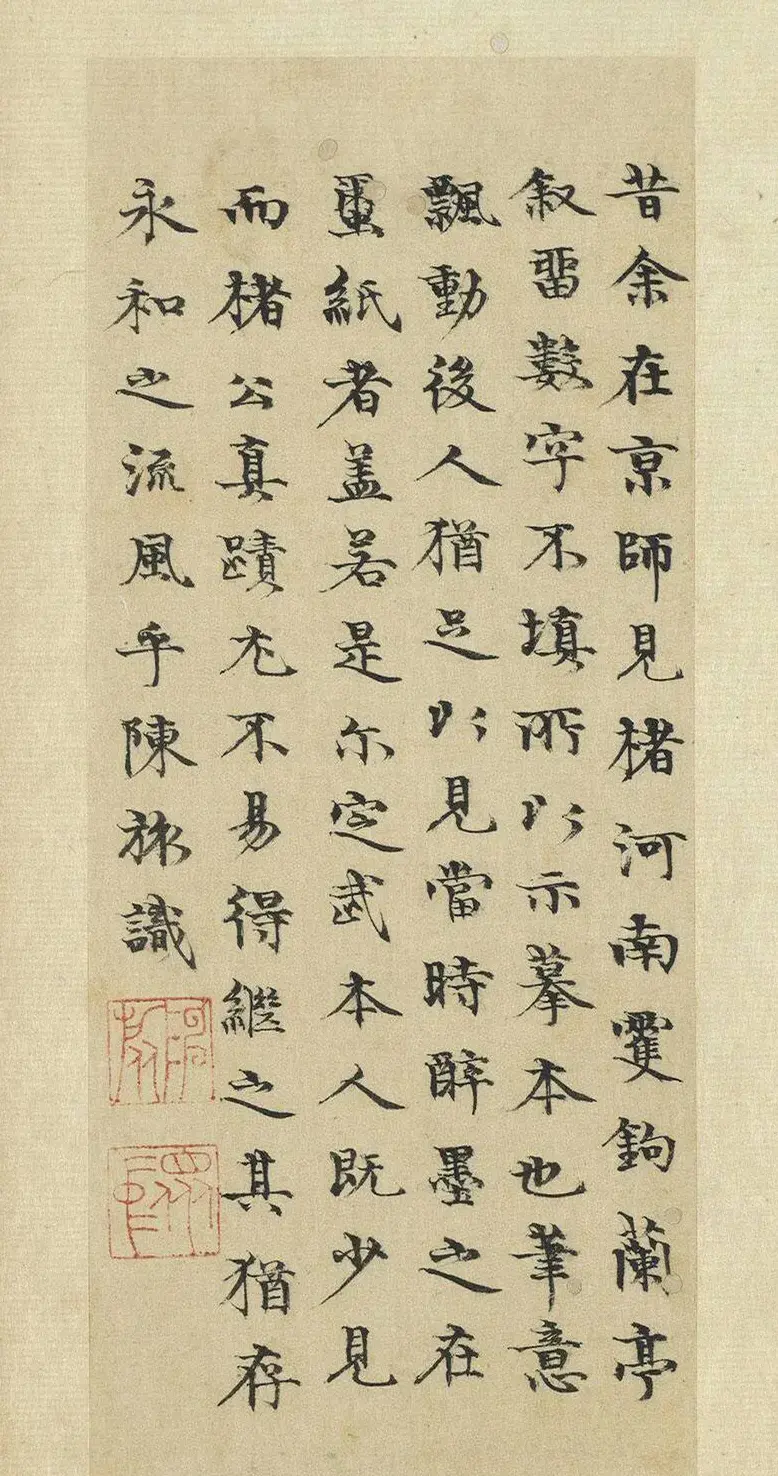 昔余在京師見楮河南雙鉤蘭亭
叙畱數字不填所以示摹本也筆意
飄動後人猶足以見當時醉墨之在
蠒紙者盖若是尔定武本人既少見
而楮公真蹟尤不易得繼之其猶存
永和之流風乎陳旅識